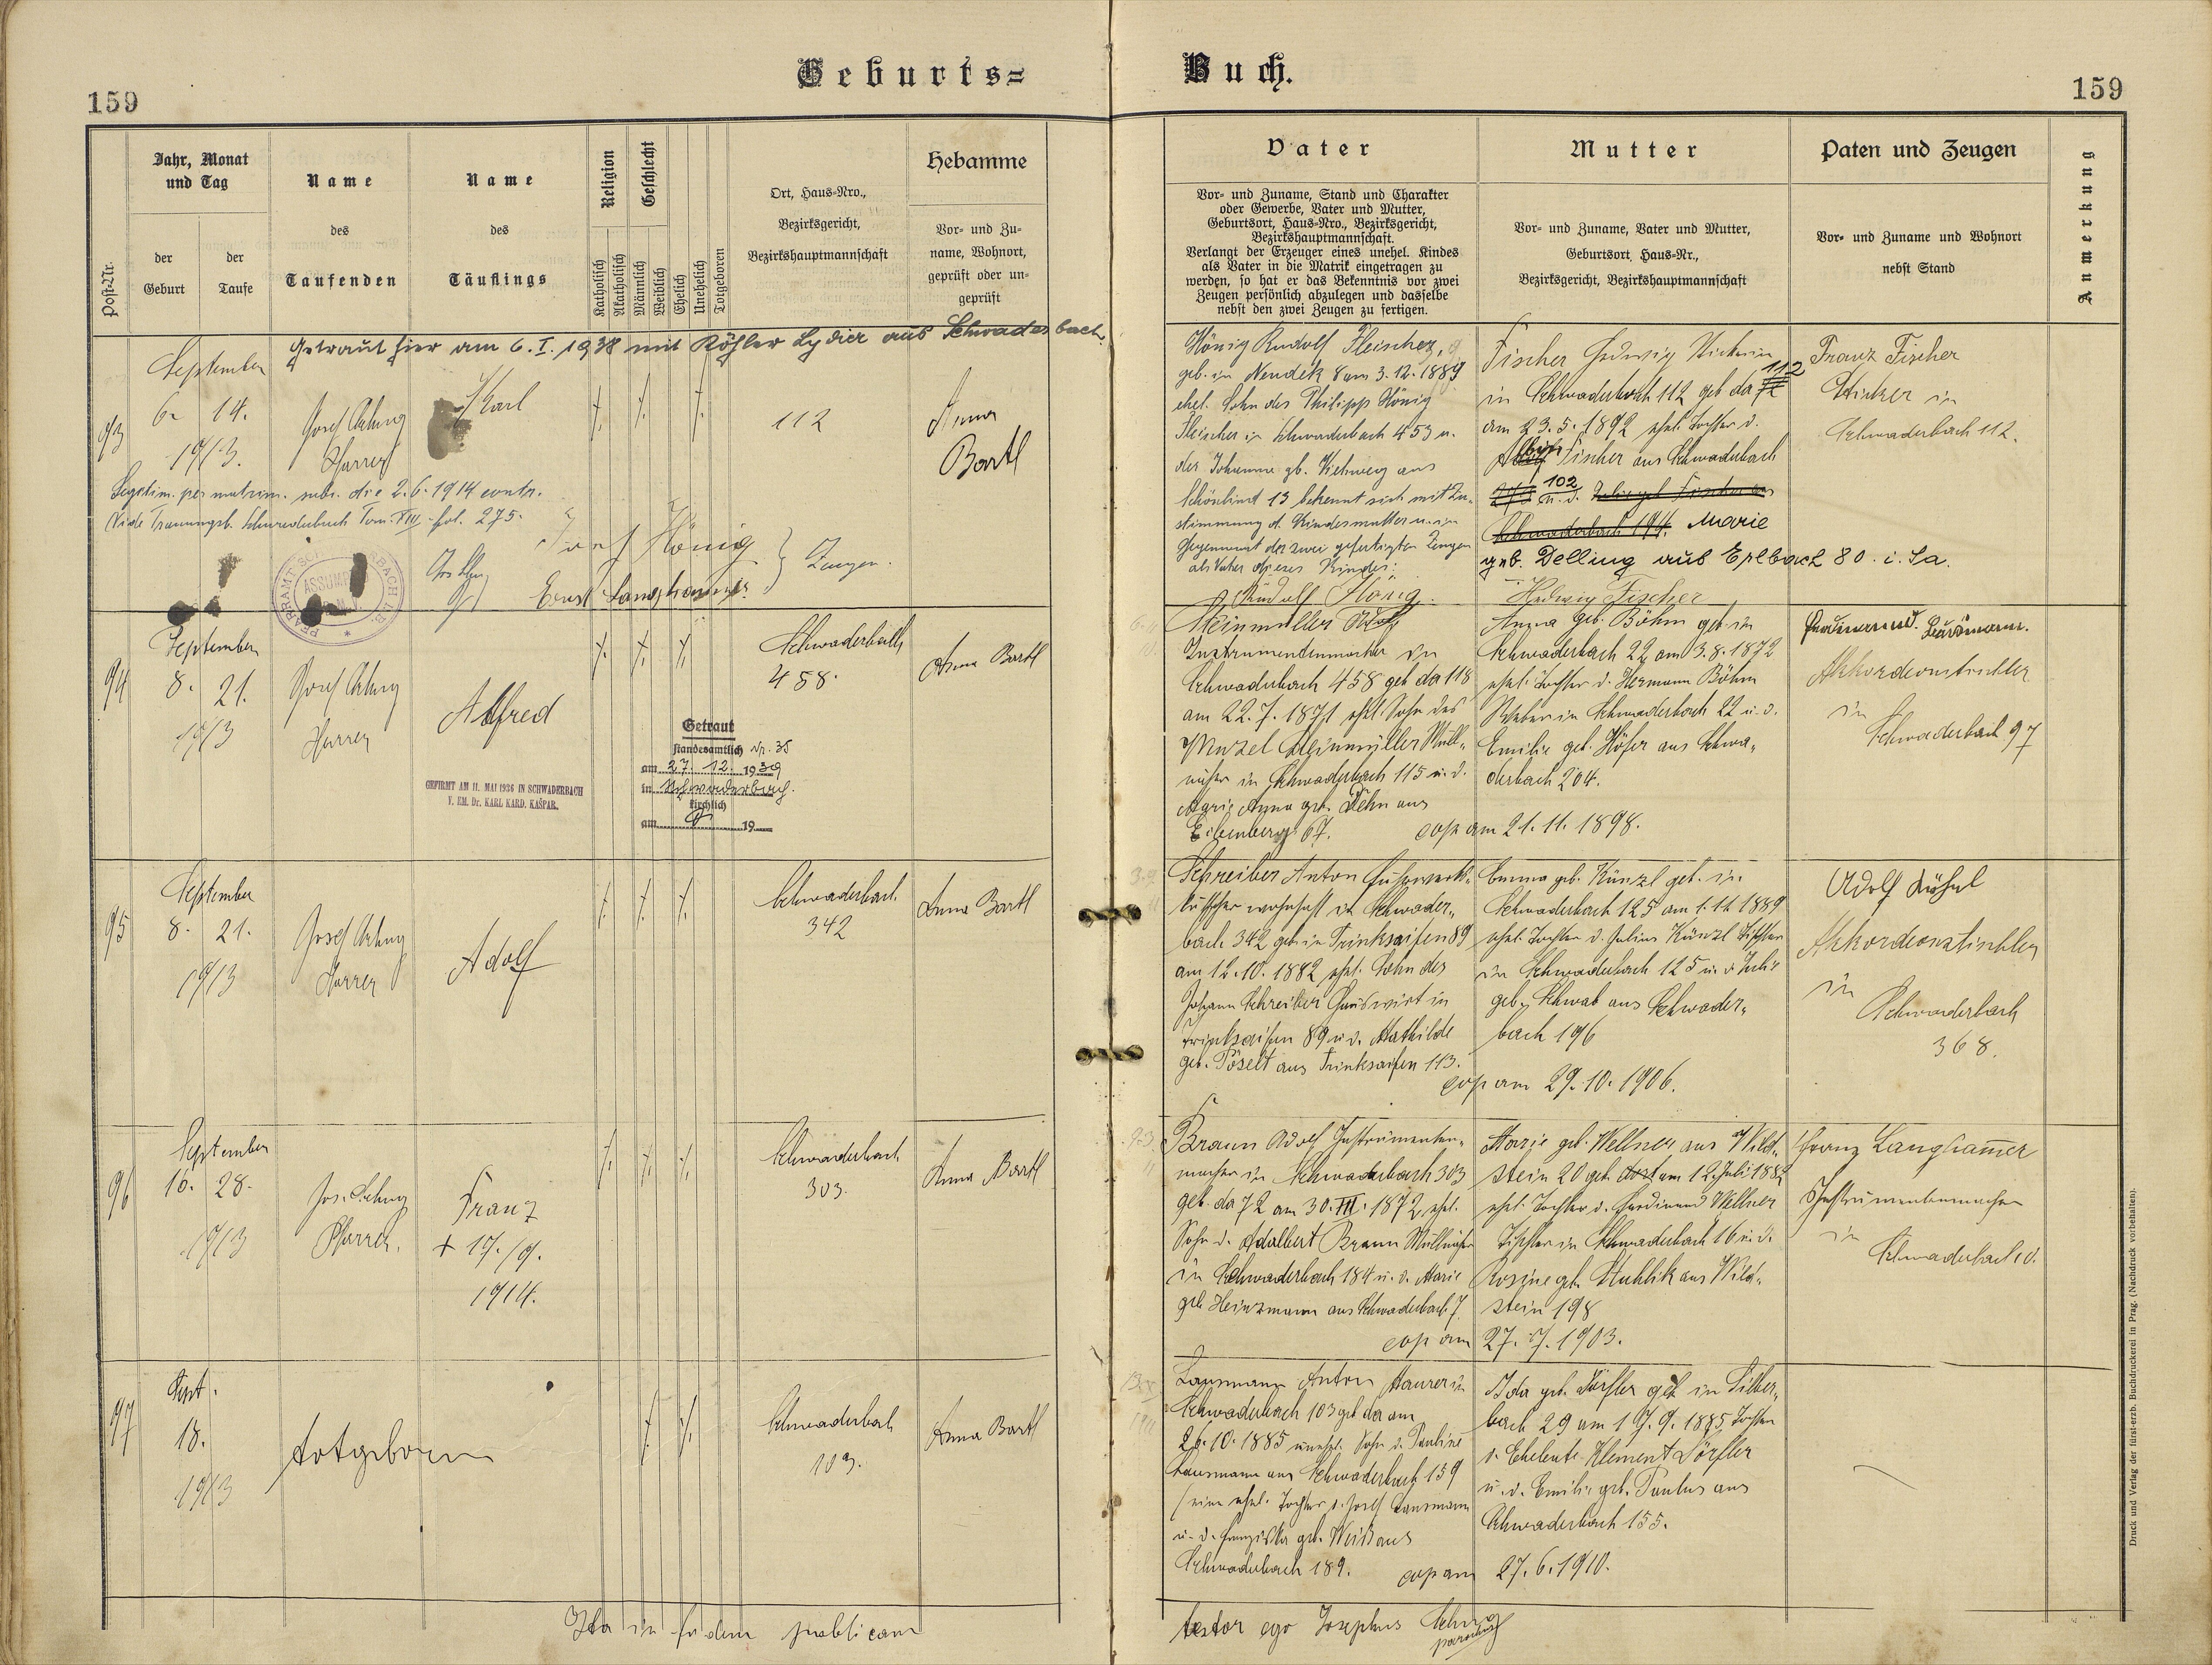 159
Geburts=
Buch.
159
Post-Nr.
Jahr, Monat
und Tag
der
Geburt
der
Taufe
Name
des
Taufenden
Name
des
Täuflings
Religion
Katholisch
Akatholisch
Geschlecht
Männlich
Weiblich
Ehelich
Unehelich
Totgeboren
Ort, Haus=Nro.,
Bezirksgericht,
Bezirkshauptmannschaft
Hebamme
Vor= und Zu=
name, Wohnort,
geprüft oder un=
geprüft
Vater
Vor= und Zuname, Stand und Charakter
oder Gewerbe, Vater und Mutter,
Geburtsort, Haus=Nro., Bezirksgericht,
Bezirkshauptmannschaft.
Verlangt der Erzeuger eines unehel. Kindes
als Vater in die Matrik eingetragen zu
werden, so hat er das Bekenntnis vor zwei
Zeugen persönlich abzulegen und dasselbe
nebst den zwei Zeugen zu fertigen.
Mutter
Vor= und Zuname, Vater und Mutter,
Geburtsort, Haus=Nr.,
Bezirksgericht, Bezirkshauptmannschaft
Paten und Zeugen
Vor= und Zuname und Wohnort
nebst Stand
Anmerkung
Getraut hier am 6. I. 1938 mit Köhler Lydia aus Schwaderbach
93
September
6. 14.
1913.
Josef
Pfarrer
Karl
112
Anna
Bartl
Legitim. per matrim. subs. die 2.6.1914 contr.
Vide Trauungsb. Schwaderbach Tom. VIII fol. 275.
Josef Hönig
Ernst Langhammer
Zeugen.
Hönig Rudolf Fleischer,
geb. in Neudek 8 am 3.12.1889
ehel. Sohn des Philipp Hönig
Fleischer in Schwaderbach 453 u.
der Johanna gb. Viehweg aus
Schönlind 13 bekennt sich mit Zu=
stimmung d. Kindesmutter u. in
Gegenwart der zwei gefertigten Zeugen
als Vater dieses Kindes:
Rudolf Hönig.
Fischer Hedwig Stickerin
in Schwaderbach 112 geb da 112
am 23.5.1892 ehel. Tochter d.
Fischer aus Schwaderbach
102 u. d.
Schwaderbach 194. Marie
geb. Delling aus Erlbach 80. i. Sa.
Hedwig Fischer
Franz Fischer
Sticker in
Schwaderbach 112.
94
September
8. 21.
1913
Josef
Pfarrer
Alfred
GEFIRMT AM 11. MAI 1936 IN SCHWADERBACH
V. EM. Dr. KARL KARD. KAŠPAR.
Schwaderbach
458.
Anna Bartl
Getraut
standesamtlich Nr. 35
am 27. 12. 1939
in Schwaderbach.
kirchlich
am 19
Meinmüller
Instrumentenmacher in
Schwaderbach 458 geb da 118
am 22.7.1871 ehel. Sohn des
Wenzel Meinmüller Musik=
in Schwaderbach 115 u. d.
Marie Anna geb. aus
Eibenberg 67.
cop am 21.11.1898.
Anna geb. Böhm geb in
Schwaderbach 22 am 3.8.1872
ehel. Tochter d. Hermann Böhm
Weber in Schwaderbach 22 u. d.
Emilie geb. Höfer aus Schwa=
derbach 204.
Akkordeontischler
in
Schwaderbach 97
95
September
8. 21.
1913
Josef
Pfarrer
Adolf
Schwaderbach.
342
Anna Bartl
Schreiber Anton Fuhrwerks=
kutscher wohnhaft in Schwader=
bach 342 geb in Trinksaifen 89
am 12.10.1882 ehel. Sohn des
Johann Schreiber Hauswirt in
Trinksaifen 89 u d. Mathilde
geb. Pöselt aus Trinksaifen 113.
cop am 29.10.1906.
Emma geb. Künzl geb. in
Schwaderbach 125 am 1.11.1889
ehel. Tochter d. Julius Künzl Tischler
in Schwaderbach 125 u. d. Julie
geb. Schwab aus Schwader=
bach 196
Adolf
Akkordeontischler
in
Schwaderbach
368.
96
September
16. 28.
1913
Jos.
Pfarrer.
Franz
+ 17./9.
1914.
Schwaderbach
303.
Anna Bartl
Braun Adolf Instrumenten=
macher in Schwaderbach 303
geb. da 72 am 30.III.1872, ehel.
Sohn d. Adalbert Braun
in Schwaderbach 184 u. d. Marie
geb Heinzmann aus Schwaderbach 7.
cop am 27.7.1903.
Marie geb. Wellner aus Wild=
stein 20 geb. dort am 12. Juli 1882
ehel. Tochter d. Ferdinand Wellner
Tischler in Schwaderbach 16 u. d.
Rosine geb. aus Wild=
stein 198
Franz Langhammer
Instrumentenmacher
in
Schwaderbach
97
Sept.
18.
1913
totgeboren
Schwaderbach
103.
Anna Bartl
Lausmann Anton Maurer in
Schwaderbach 103 geb da am
26.10.1885 unehel. Sohn d. Pauline
Lausmann aus Schwaderbach 159
(eine ehel. Tochter d. Josef Lausmann
u. d. Franziska geb. Weiß aus
Schwaderbach 189.
cop am 27.6.1910.
Ida geb. Dörfler geb in Silber=
bach 29 am 17.9.1885 Tochter
d. Eheleute Klement Dörfler
u. d. Emilie geb. Paulus aus
Schwaderbach 155.
Ita in fidem publicam
testor ego Josephus
parochus
Druck und Verlag der fürst-erzb. Buchdruckerei in Prag. (Nachdruck vorbehalten).